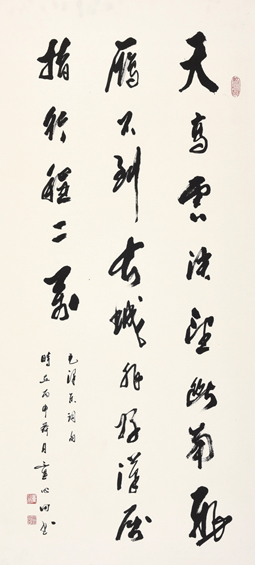 天高雲淡望斷南飛
雁不到長城非好漢屈
指行程二萬
毛澤東詞句
時在丙申月